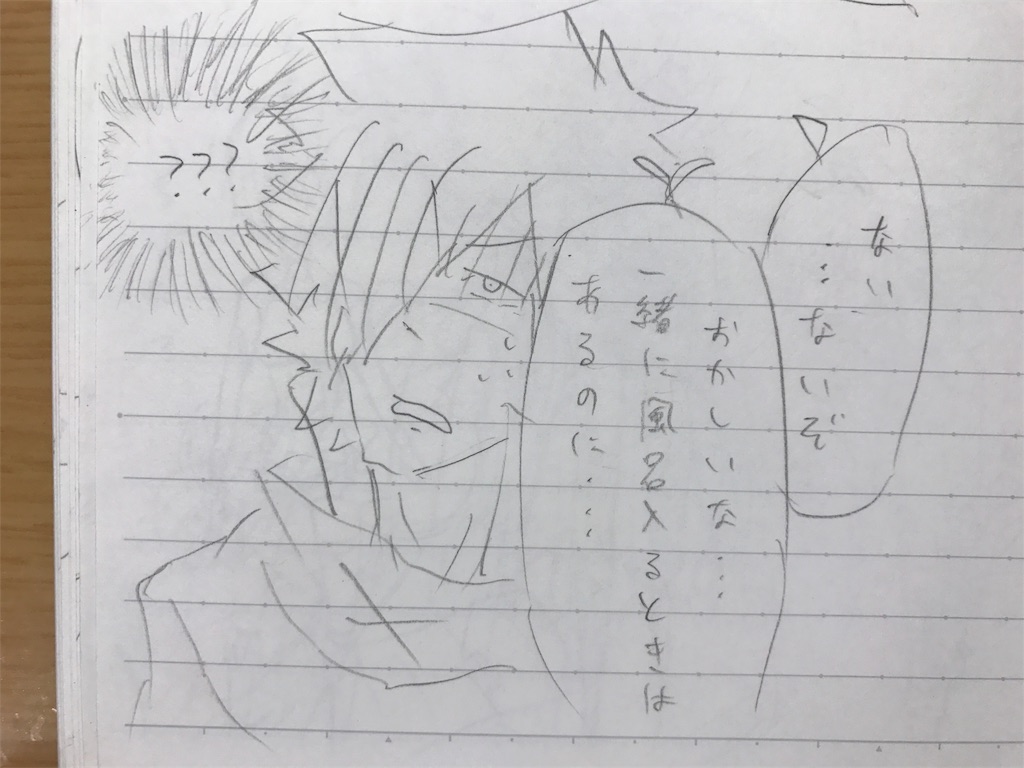 ない
…ないぞ
おかしいな…
一緒に風呂入るときは
あるのに……
???